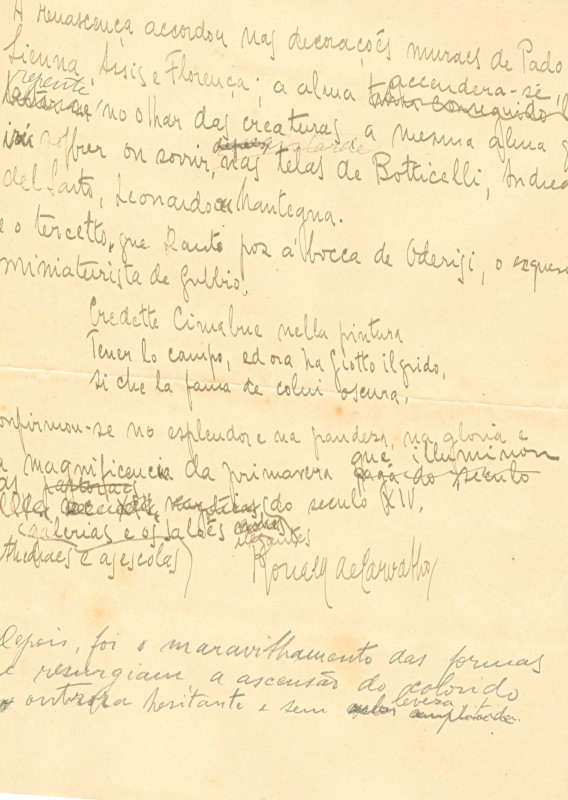 A renascença accordou nas decorações muraes de Pado
Sienna, Assis e Florença; a alma accendera-se,
repente no olhar das creaturas, a mesma alma q
soffrer ou sorrir, nas telas de Botticelli, Andrea
del Sarto, Leonardo Mantegna.
e o tercetto, que Dante poz á bocca de Oderisi, o exquisi
miniaturista de Gubbio,
Credette Cimabue nella pintura
Tener lo campo, ed ora ha Giotto il grido,
Si che la fama de colui oscura.
onfirmou-se no esplendor e na grandeza, na gloria e
a magnificencia da primavera que illuminou
as do seculo XIV.
galerias e os salões
elegantes
Atheneus e as escolas
Ronald de Carvalho
Depois, foi o maravilhamento das formas
e resurgiam a ascensão do colorido
outrora hesitante e sem leveza